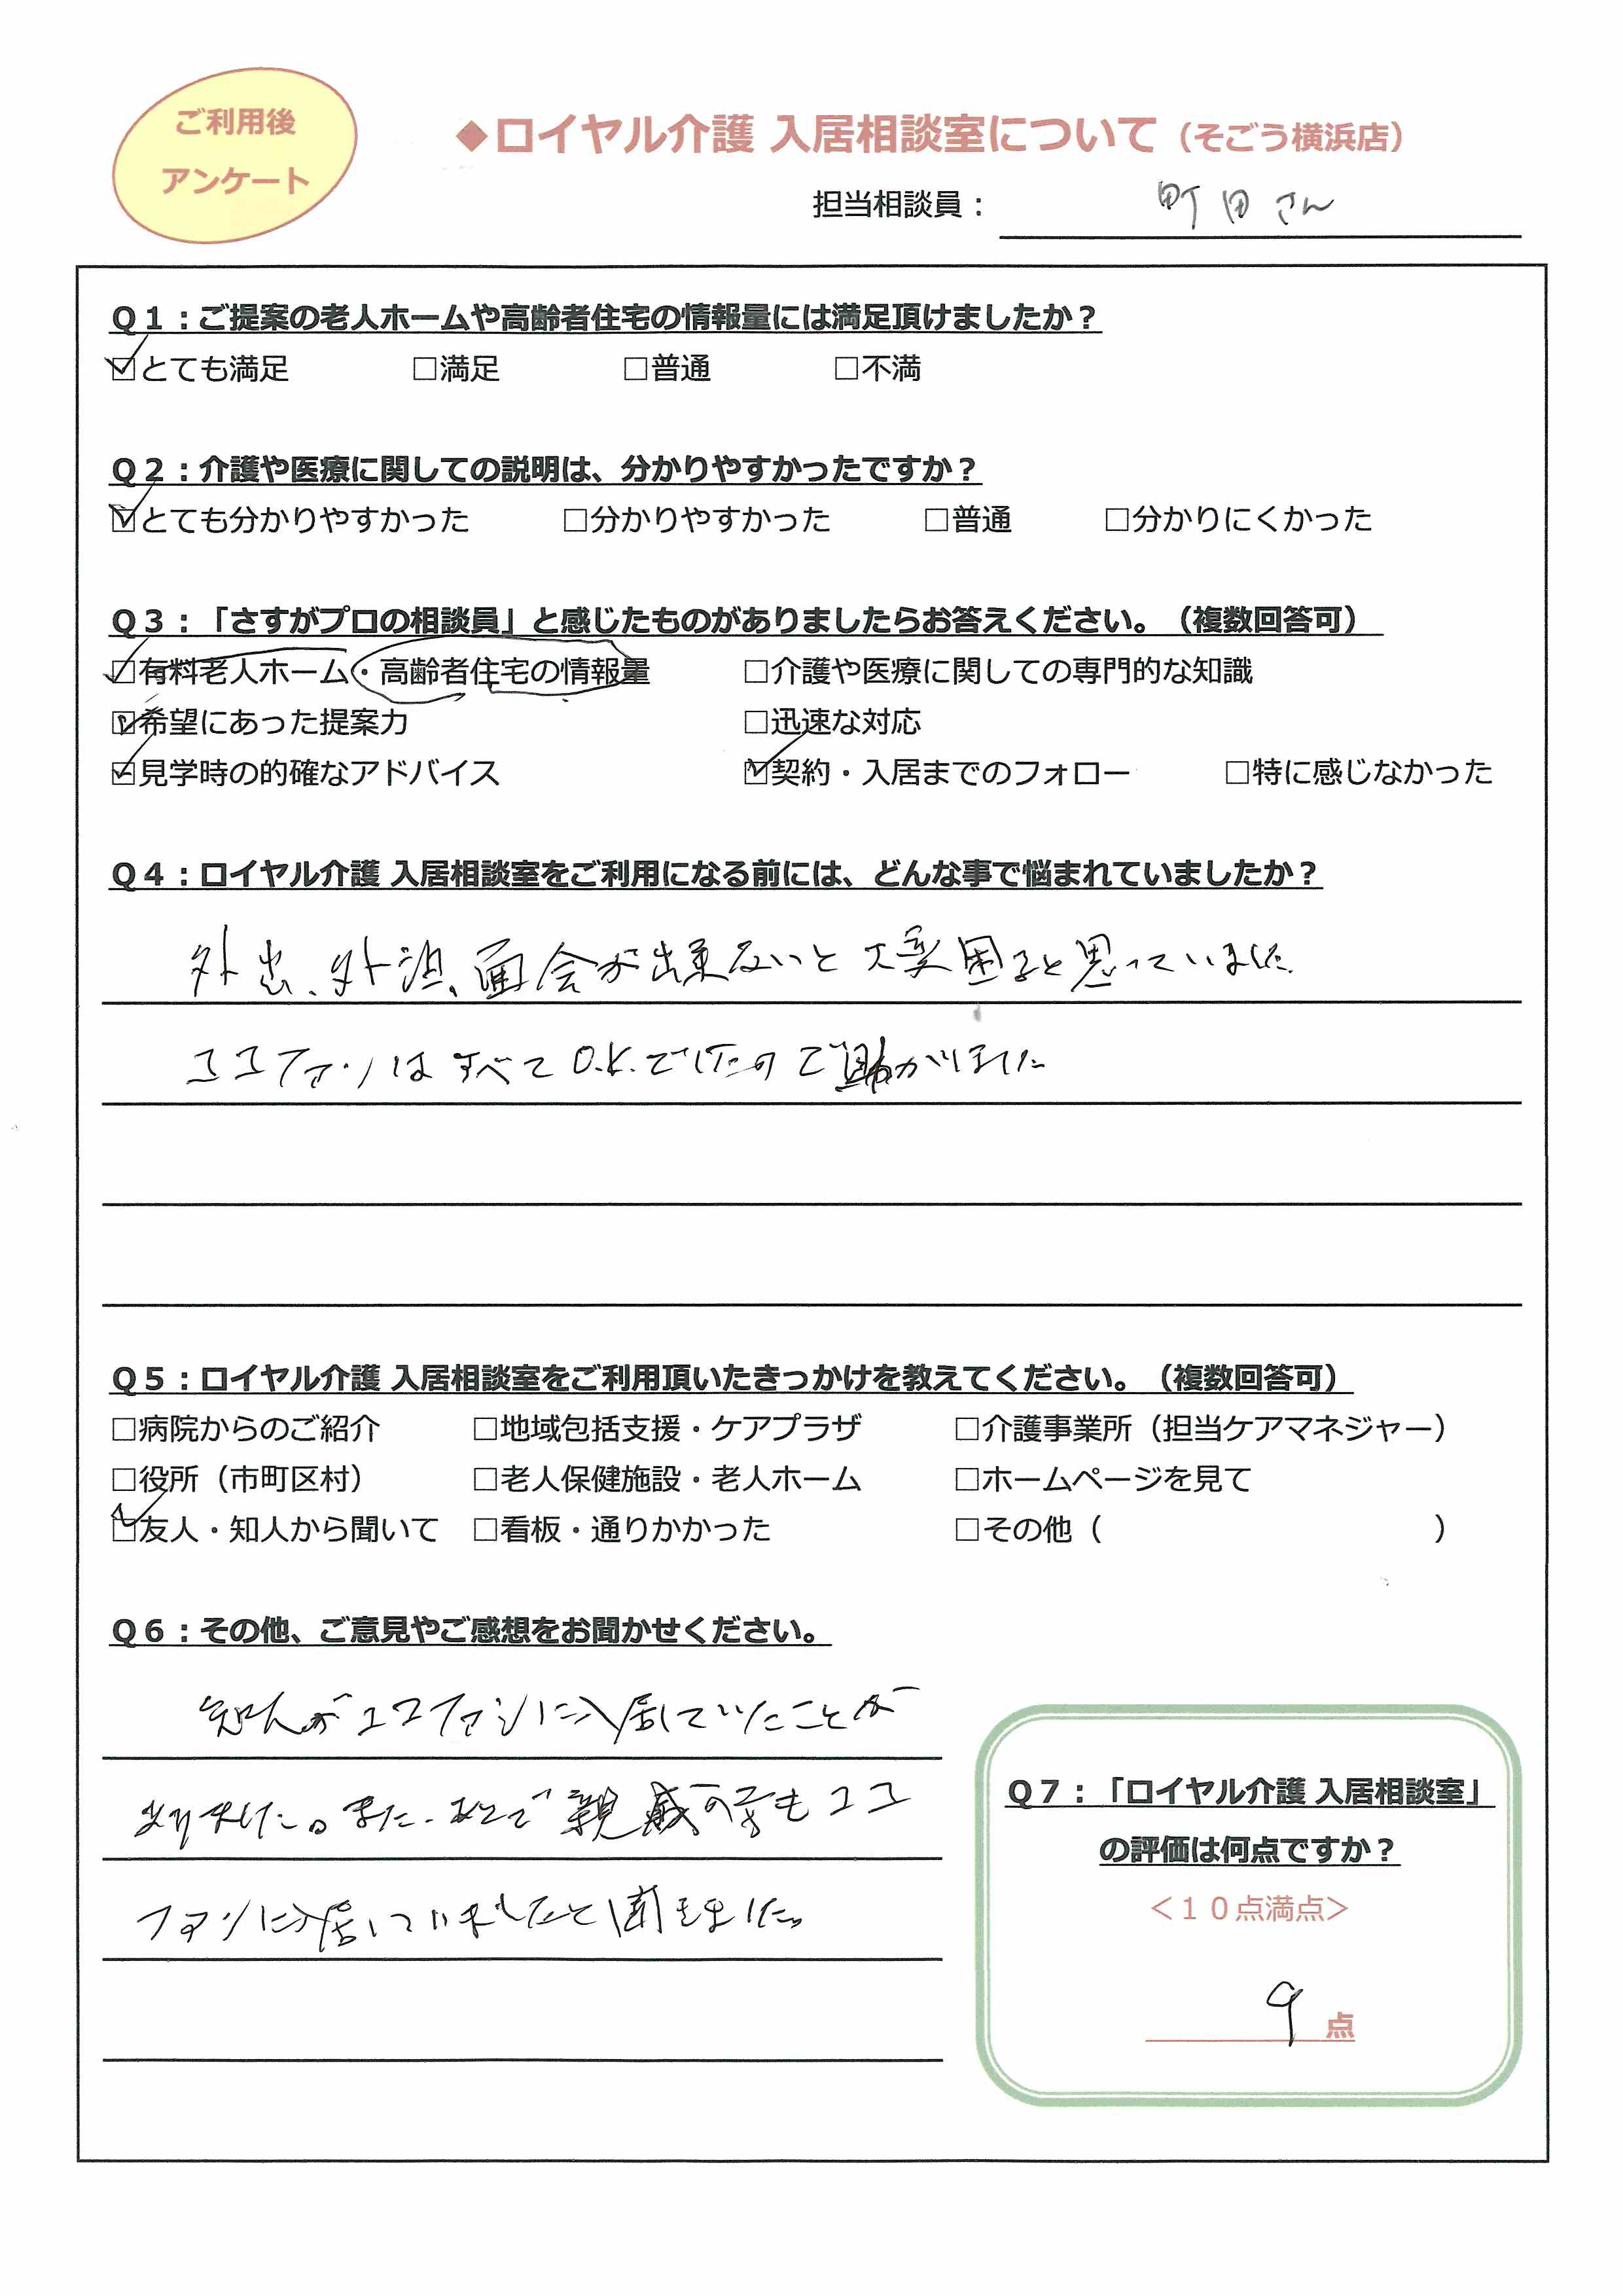 ご利用後
アンケート
◆ロイヤル介護 入居相談室について（そごう横浜店）
担当相談員： 町田さん
Q1：ご提案の老人ホームや高齢者住宅の情報量には満足頂けましたか？
☑とても満足 □満足 □普通 □不満
Q2：介護や医療に関しての説明は、分かりやすかったですか？
☑とても分かりやすかった □分かりやすかった □普通 □分かりにくかった
Q3：「さすがプロの相談員」と感じたものがありましたらお答えください。（複数回答可）
☑有料老人ホーム・高齢者住宅の情報量 □介護や医療に関しての専門的な知識
☑希望にあった提案力 □迅速な対応
☑見学時の的確なアドバイス ☑契約・入居までのフォロー □特に感じなかった
Q4：ロイヤル介護 入居相談室をご利用になる前には、どんな事で悩まれていましたか？
外出、外泊、面会が出来ないと大変困ると思っていました
ココファンはすべてO.K.でしたので助かりました
Q5：ロイヤル介護 入居相談室をご利用頂いたきっかけを教えてください。（複数回答可）
□病院からのご紹介 □地域包括支援・ケアプラザ □介護事業所（担当ケアマネジャー）
□役所（市町区村） □老人保健施設・老人ホーム □ホームページを見て
☑友人・知人から聞いて □看板・通りかかった □その他（ ）
Q6：その他、ご意見やご感想をお聞かせください。
知人がココファンに入居していたことが
ありました。また、あとで親戚の子もココ
ファンに入居していましたと聞きました。
Q7：「ロイヤル介護 入居相談室」
の評価は何点ですか？
＜１０点満点＞
9 点